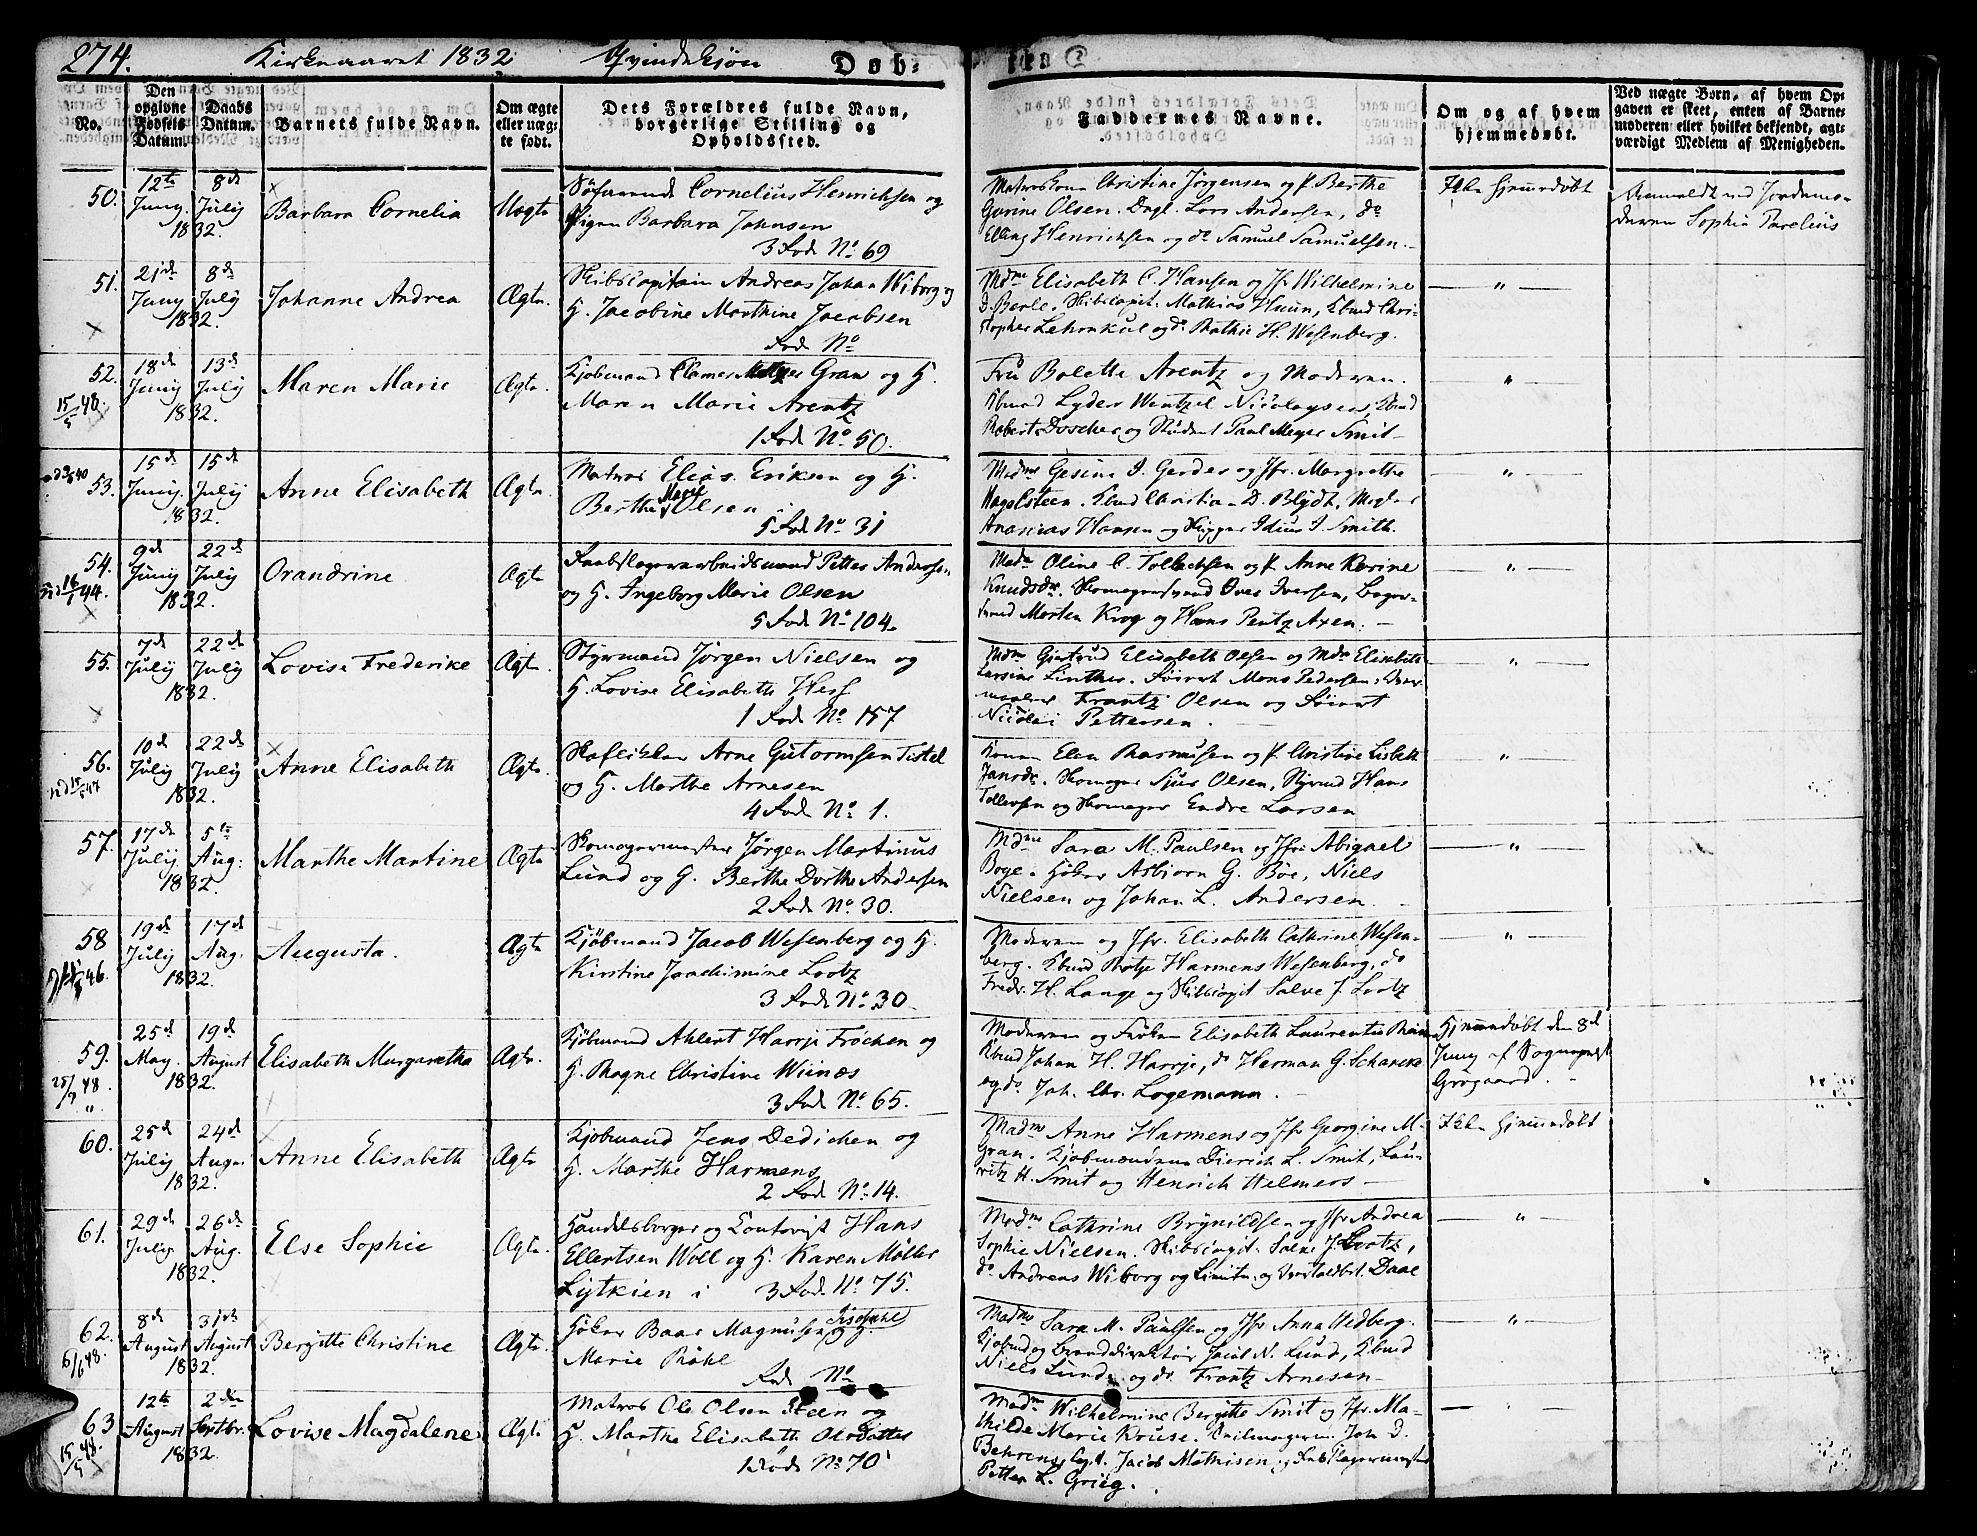 274. Kirkeaaret 1832. Qvindekjøn Døb- te.
No.
Den opgivne Fødsels Datum.
Daabs Datum.
Barnets fulde Navn.
Om ægte eller uægte født.
Dets Forældres fulde Navn, borgerlige Stilling og Opholdssted.
Faddernes Navne.
Om og af hvem hjemmedøbt.
Ved uægte Børn, af hvem Opgaven er skeet, enten af Barnemoderen eller hvilket bekjendt, agtværdigt Medlem af Menigheden.
50. 12te Juny 1832. 8de July
Barbara Cornelia
Uægte
Søfarende Cornelius Henrichsen og
Pigen Barbara Johnsen
3 Fod No 69
Matroskone Christine Jørgensen og P. Berthe
Gurine Olsen. Dagl. Lars Andersen, do
Elling Henrichsen og do Samuel Samuelsen.
Ikke hjemmedøbt
Anmeldt ved Jordemo-
deren Sophie Parelius
51. 21de Juny 1832. 8de July
Johanne Andrea
Ægte.
Skibscapitain Andreas Johan Wiborg og
H. Jacobine Marthine Jacobsen
Fod No
Mdme Elisabeth C. Hansen og Jfr Wilhelmine
D. Berle. Skibscapit. Mathias Huun, Kbmd Chri-
stopher Lehmkul og do Rathie H. Wesenberg.
"
52. 18de Juny 1832. 13de July
15/5 48.
Maren Marie
Ægte.
Kjøbmand Clamer Meltzer Gran og H.
Maren Marie Arentz
1 Fod No 50.
Fru Bolette Arentz og Moderen.
Kbmd Lyder Wentzel Nicolaysen, Kbmd
Robert Döscher og Student Paul Meyer Smit
"
53. 15de Juny 1832. 15de July
Anne Elisabeth
Ægte.
Matros Elias Eriksen og H.
Berthe Marie Olsen
5 Fod No 31
Mdme Gesine I. Gerdes og Jfr. Margrethe
Hagelsteen. Kbmd Christian D. Blydt, Mægler
Ananias Hansen og Skipper Idius I. Smith.
"
54. 9de Juny 1832. 22de July
Orandrine
Ægte
Reebslagerarbeidsmand Petter Andersen
og H. Ingeborg Marie Olsen
5 Fod No 104.
Mdme Oline C. Tollechsen og P. Anne Karine
Knudsdr. Skomagersvend Iver Iversen, Bager-
svend Morten Krog og Hans Pentz Axen.
"
55. 7de July 1832. 22de July
Lovise Frederike
Ægte.
Styrmand Jørgen Nielsen og
H. Lovise Elisabeth Hess
1 Fod No 157
Mdme Giertrud Elisabeth Olsen og Mdme Elisabeth
Larsine Linther. Møens Pedersen,
Frantz Olsen og
Nicolai Pettersen.
"
56. 10de July 1832. 22de July
Anne Elisabeth
Ægte.
Arne Gutormsen Tistel
og H. Marthe Arnesen
4 Fod No 1.
Konen Elen Rasmusen og P. Christine Lisbeth
Jansdr. Skomager Sjur Olsen, Styrmd Hans
Tollevsen og Skomager Endre Larsen
"
57. 17de July 1832. 5te Aug:
Marthe Martine
Ægte
Skomagermester Jørgen Martinus
Lund og H. Berthe Dorthe Andersen
2 Fod No. 30.
Mdme Sara M. Paulsen og Jfr: Abigael
Boge. Høker Asbiørn G. Böe, Niels
Nielsen og Johan L. Andersen.
"
58 19de July 1832. 17de Aug.
Augusta.
Ægte
Kjøbmand Jacob Wesenberg og H.
Kirstine Joachimine Lootz
3 Fod No. 30.
Moderen og Jfr. Elisabeth Cathrine Wesen-
berg. Kbmd Rotje Harmens Wesenberg, do
Fredr. H. Lange og Skibscapit Salve J. Lootz
"
59. 25de May. 1832. 19de August
Elisabeth Margaretha
Ægte.
Kjøbmand Ahlert Harrje Frøchen og
H. Magne Christine Wiinæs
3 Fod No 65.
Moderen og Frøken Elisabeth Laurentze
Kbmd Johan H. Harrje, do Herman G. Schancke
og do. Joh. Chr. Logemann.
Hjemmedøbt den 8de
Juny af Sognepræst
Grøgaard.
60. 25de July 1832. 24de Aug.
Anne Elisabeth
Ægte
Kjøbmand Jens Dedichen og
H. Marthe Harmens
2 Fod No. 14.
Madme Anne Harmens og Jfr Georgine M.
Gran. Kjøbmændene Dierich L. Smit, Lau-
ritz H. Smit og Henrich Helmers
Ikke hjemmedøbt
61. 29de July 1832. 26de Aug.
Else Sophie
Ægte.
Handelsborger og Contorist Hans
Ellertsen Woll og H. Karen Møller
Lytkien i 3 Fod. No. 75.
Madme Cathrine Brynildsen og Jfr Andrea
Sophie Nielsen. Skibscapit. Salve J. Lootz,
do Andreas Wiborg og Daae
"
62. 8de August 1832. 31de August
6/6 48.
Bergitte Christine
Ægte.
Høker Baar Magnusen Tischendl og H.
Marie Röhl
Fod No
Madme Sara M. Paulsen og Jfr Anna Hedberg.
Kjøbmd og Branddirektør Jacob N. Lund, Kbmd
Niels Lund, og do. Frantz Arnesen
"
63 12te August 1832. 2den Septbr.
15/5 48.
Lovise Magdalene
Ægte.
Matros Ole Olsen Steen og
H. Marthe Elisabeth Olsdatter
1 Fod No. 70
Madme Wilhelmine Bergitte Smit og Jfr. Ma-
thilde Marie Kruse. Seilmagerm. Joh D.
Behrens, Capt. Jacob Mathisen og Rebslagermester
Petter L. Grieg.
"